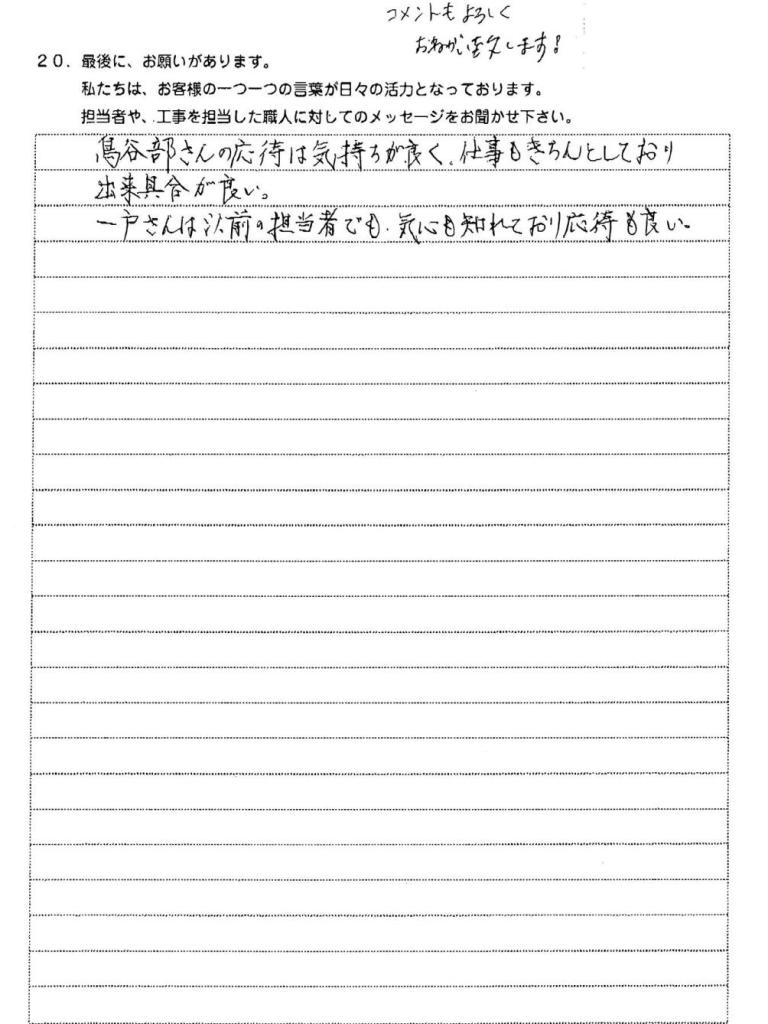 コメントもよろしく
おねがい致します!
20. 最後に、お願いがあります。
私たちは、お客様の一つ一つの言葉が日々の活力となっております。
担当者や、工事を担当した職人に対してのメッセージをお聞かせ下さい。
鳥谷部さんの応待は気持ちが良く、仕事もきちんとしており
出来具合が良い。
一戸さんは以前の担当者でも、気心も知れており応待も良い。